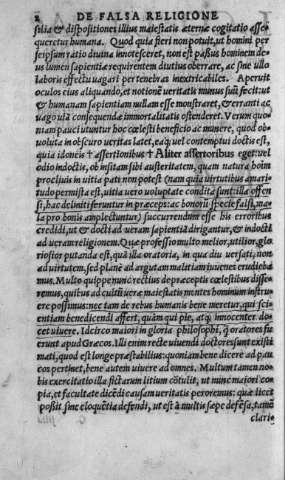 2 DE FALSA RELIGIONE
silia & dispositiones illius maiestatis æternæ cogitatio asse
queretur humana. Quod quia fieri non potuit, ut homini per
seipsum ratio diuina innotesceret, non est passus hominem de-
us lumen sapientiæ requirentem diutius oberrare, ac sine ullo
laboris effectu uagari per tenebras inextricabiles. Aperuit
oculos eius aliquando, et notionẽ veritatis munus suũ fecit: ut
& humanam sapientiam nullam esse monstraret, & erranti ac
vago uiã consequendæ immortalitatis ostenderet. Verum quo-
niam pauci utuntur hoc cœlesti beneficio ac munere, quod ob-
uoluta in obscuro veritas latet, eaq; uel contemptui doctis est,
quia idoneis † assertionibus † Aliter assertoribus eget: vel
odio indoctis, ob insitam sibi austeritatem, quam natura homĩ
procliuis in uitia pati non potest (nam quia uirtutibus amari-
tudo permista est, uitia vero voluptate condita sunt: illa offen-
si, hac deliniti feruntur in præceps: ac bonorũ specie falsi, ma-
la pro bonis amplectuntur) succurrendum esse his erroribus
credidi, ut & docti ad veram sapientiã dirigantur, & indocti
ad veram religionem. Quæ professio multo melior, utilior, glo-
riosior putanda est, quã illa oratoria, in qua diu versati, non
ad uirtutem, sed planè ad argutam malitiam iuuenes erudieba
mus. Multo quippe nũc rectius de præceptis cœlestibus dissere-
remus, quibus ad cultũ veræ maiestatis mentes hominum instrue
re possimus: nec tam de rebus humanis bene meretur, qui sci-
entiam benedicendi affert, quàm qui pie, atq; innocenter do-
cet uiuere. Idcirco maiori in gloria philosophi, q̃ oratores fu-
erunt apud Græcos. Illi enim recte uiuendi doctores sunt existi
mati, quod est longe præstabilius: quoniam bene dicere ad pau
cos pertinet, bene autem uiuere ad omnes. Multum tamen no-
bis exercitatio illa fictarum litium cõtulit, ut nunc maiori co-
pia, et facultate dicẽdi causam veritatis peroremus: quæ licet
possit sine eloquẽtia defendi, ut est à multis sæpe defẽsa, tamẽ
clari-